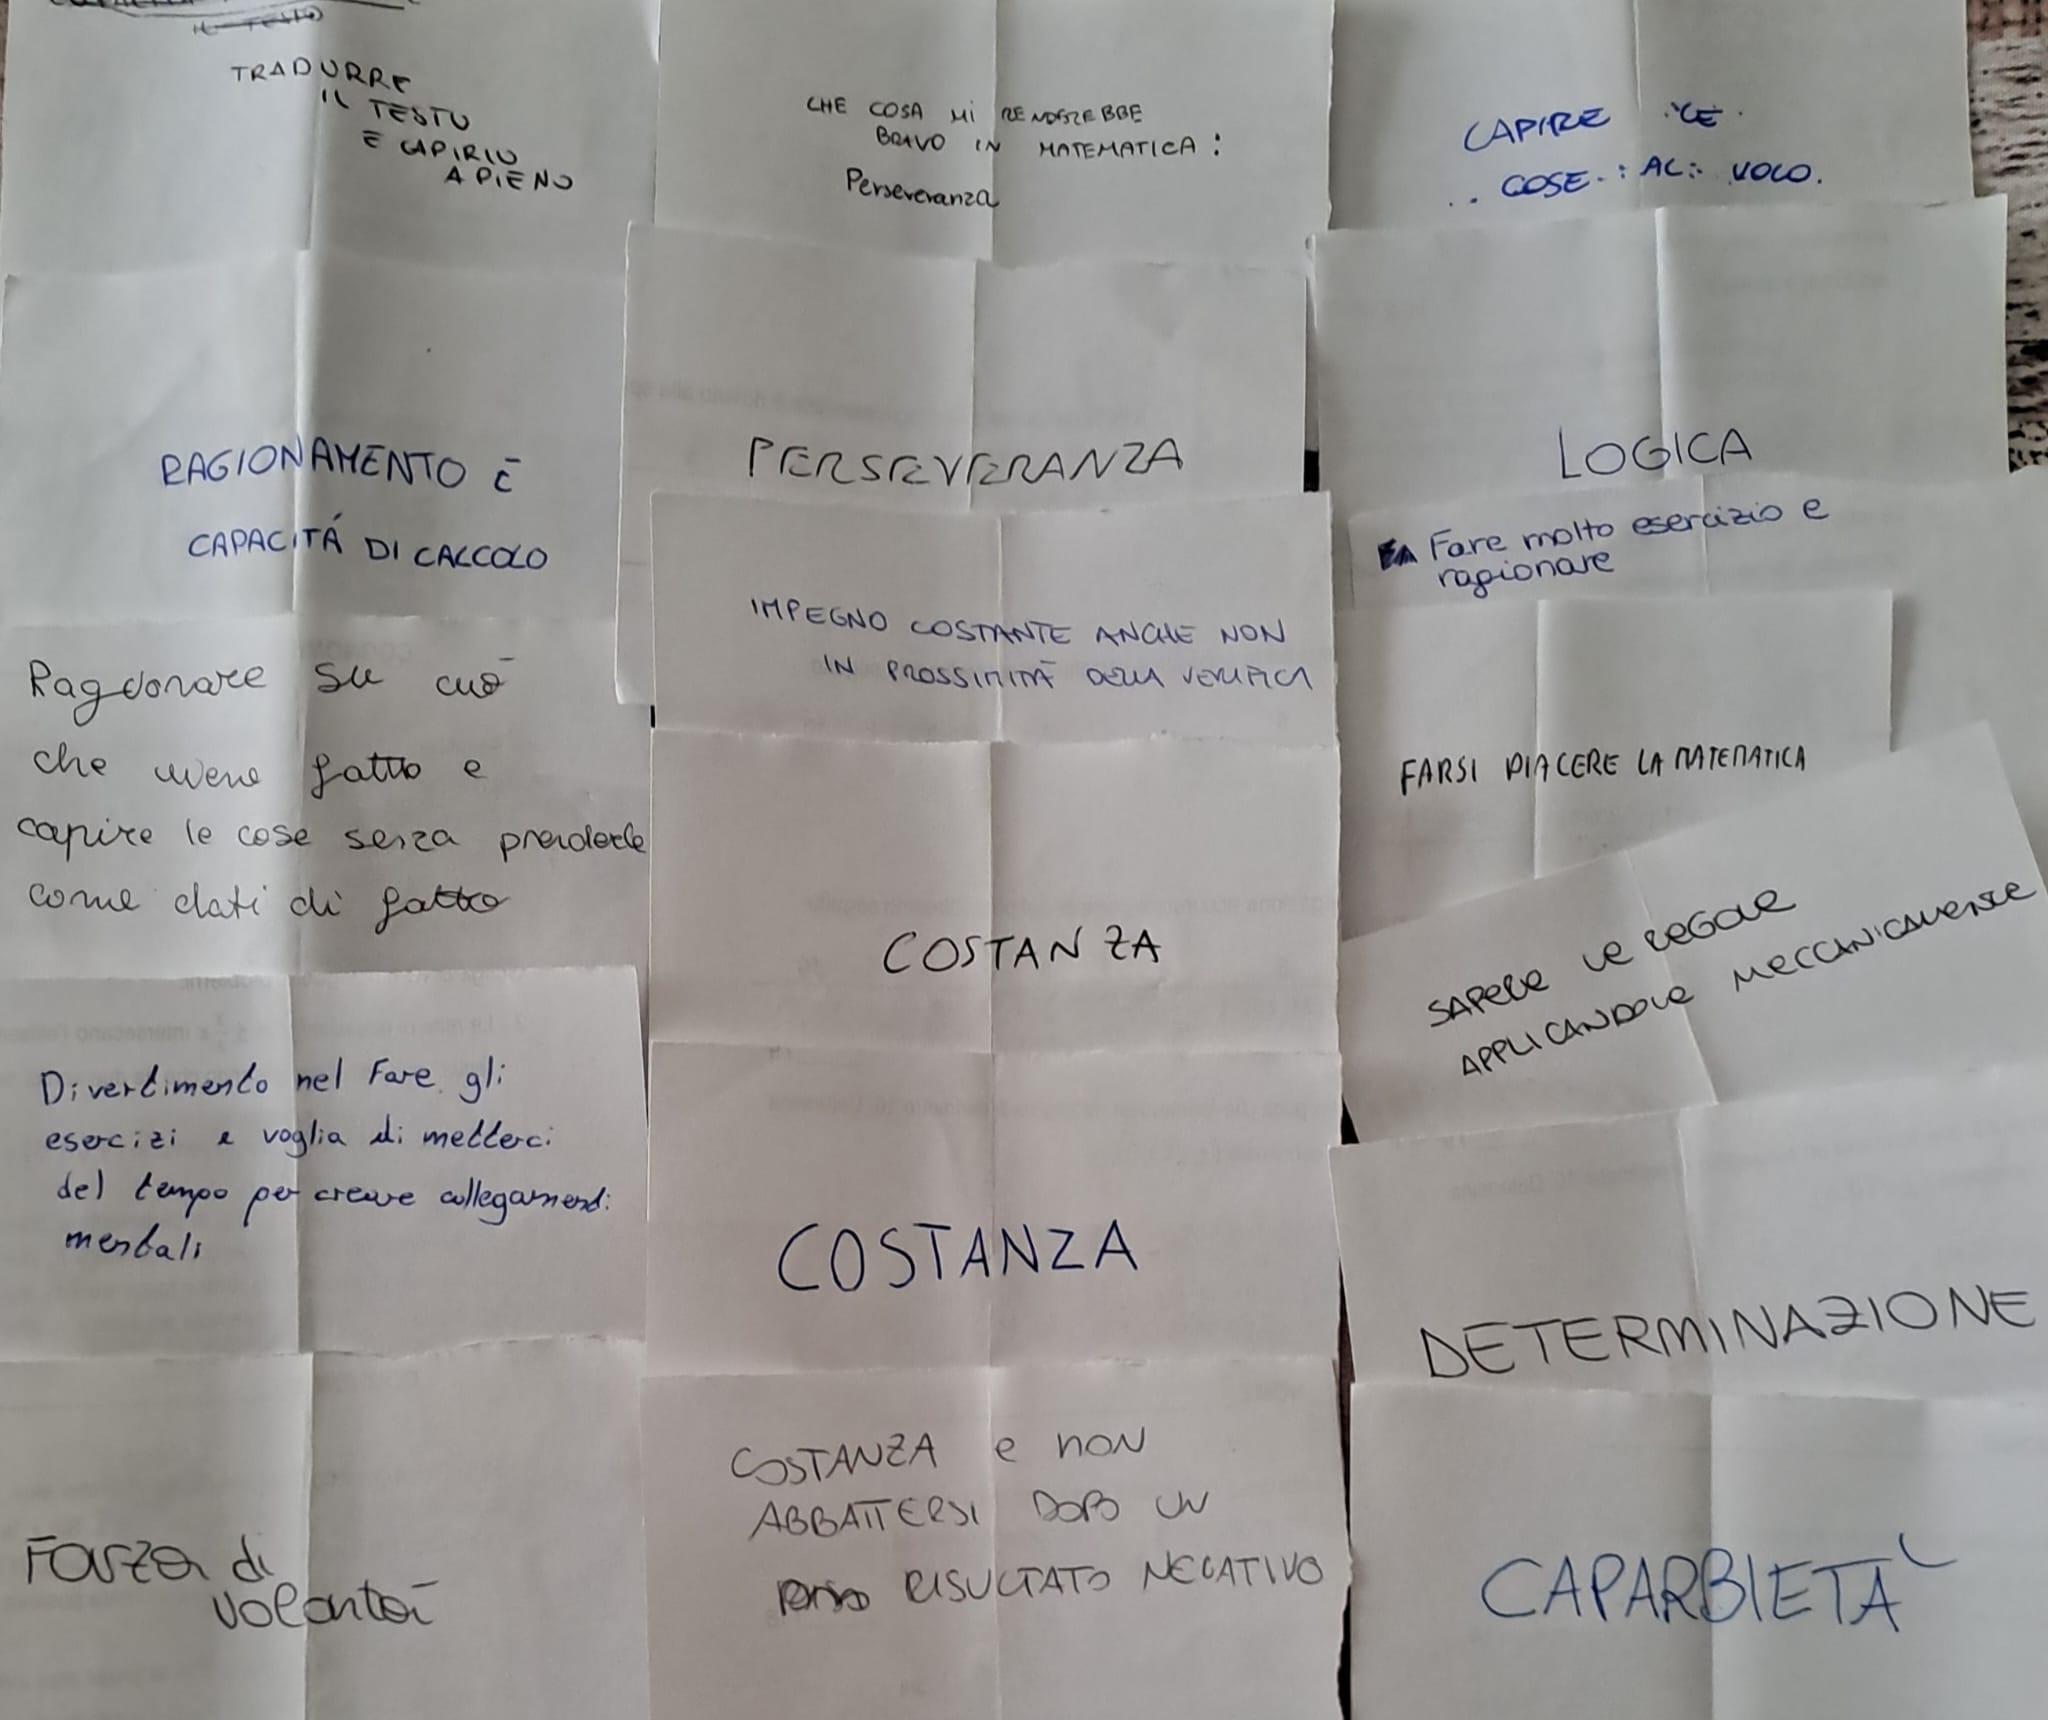 IL TESTO
TRADURRE
IL TESTO
E CAPIRLO
A PIENO
RAGIONAMENTO E
CAPACITÁ DI CALCOLO
Ragionare su ciò
che viene fatto e
capire le cose senza prenderle
come dati di fatto
Divertimento nel Fare gli
esercizi e voglia di metterci
del tempo per creare collegamenti
mentali
Forza di
volontà
CHE COSA MI RENDEREBBE
BRAVO IN MATEMATICA:
Perseveranza
PERSEVERANZA
IMPEGNO COSTANTE ANCHE NON
IN PROSSIMITÀ DELLA VERIFICA
COSTANZA
COSTANZA
COSTANZA e NON
ABBATTERSI DOPO UN
RISULTATO NEGATIVO
CAPIRE LE
COSE AL VOLO.
LOGICA
Fare molto esercizio e
ragionare
FARSI PIACERE LA MATEMATICA
SAPERE LE REGOLE
APPLICANDOLE MECCANICAMENTE
DETERMINAZIONE
CAPARBIETÀ